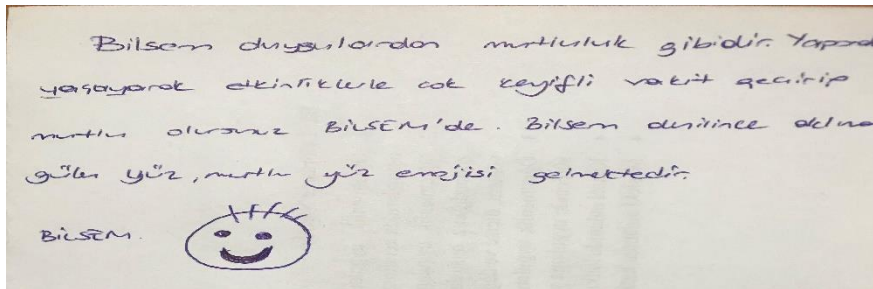 Bilsem duygulardan mutluluk gibidir. Yaparak
yaşayarak etkinliklerle çok keyifli vakit geçirip
mutlu olursunuz BİLSEM'de. Bilsem denilince aklıma
güler yüz, mutlu yüz enerjisi gelmektedir.
BİLSEM.